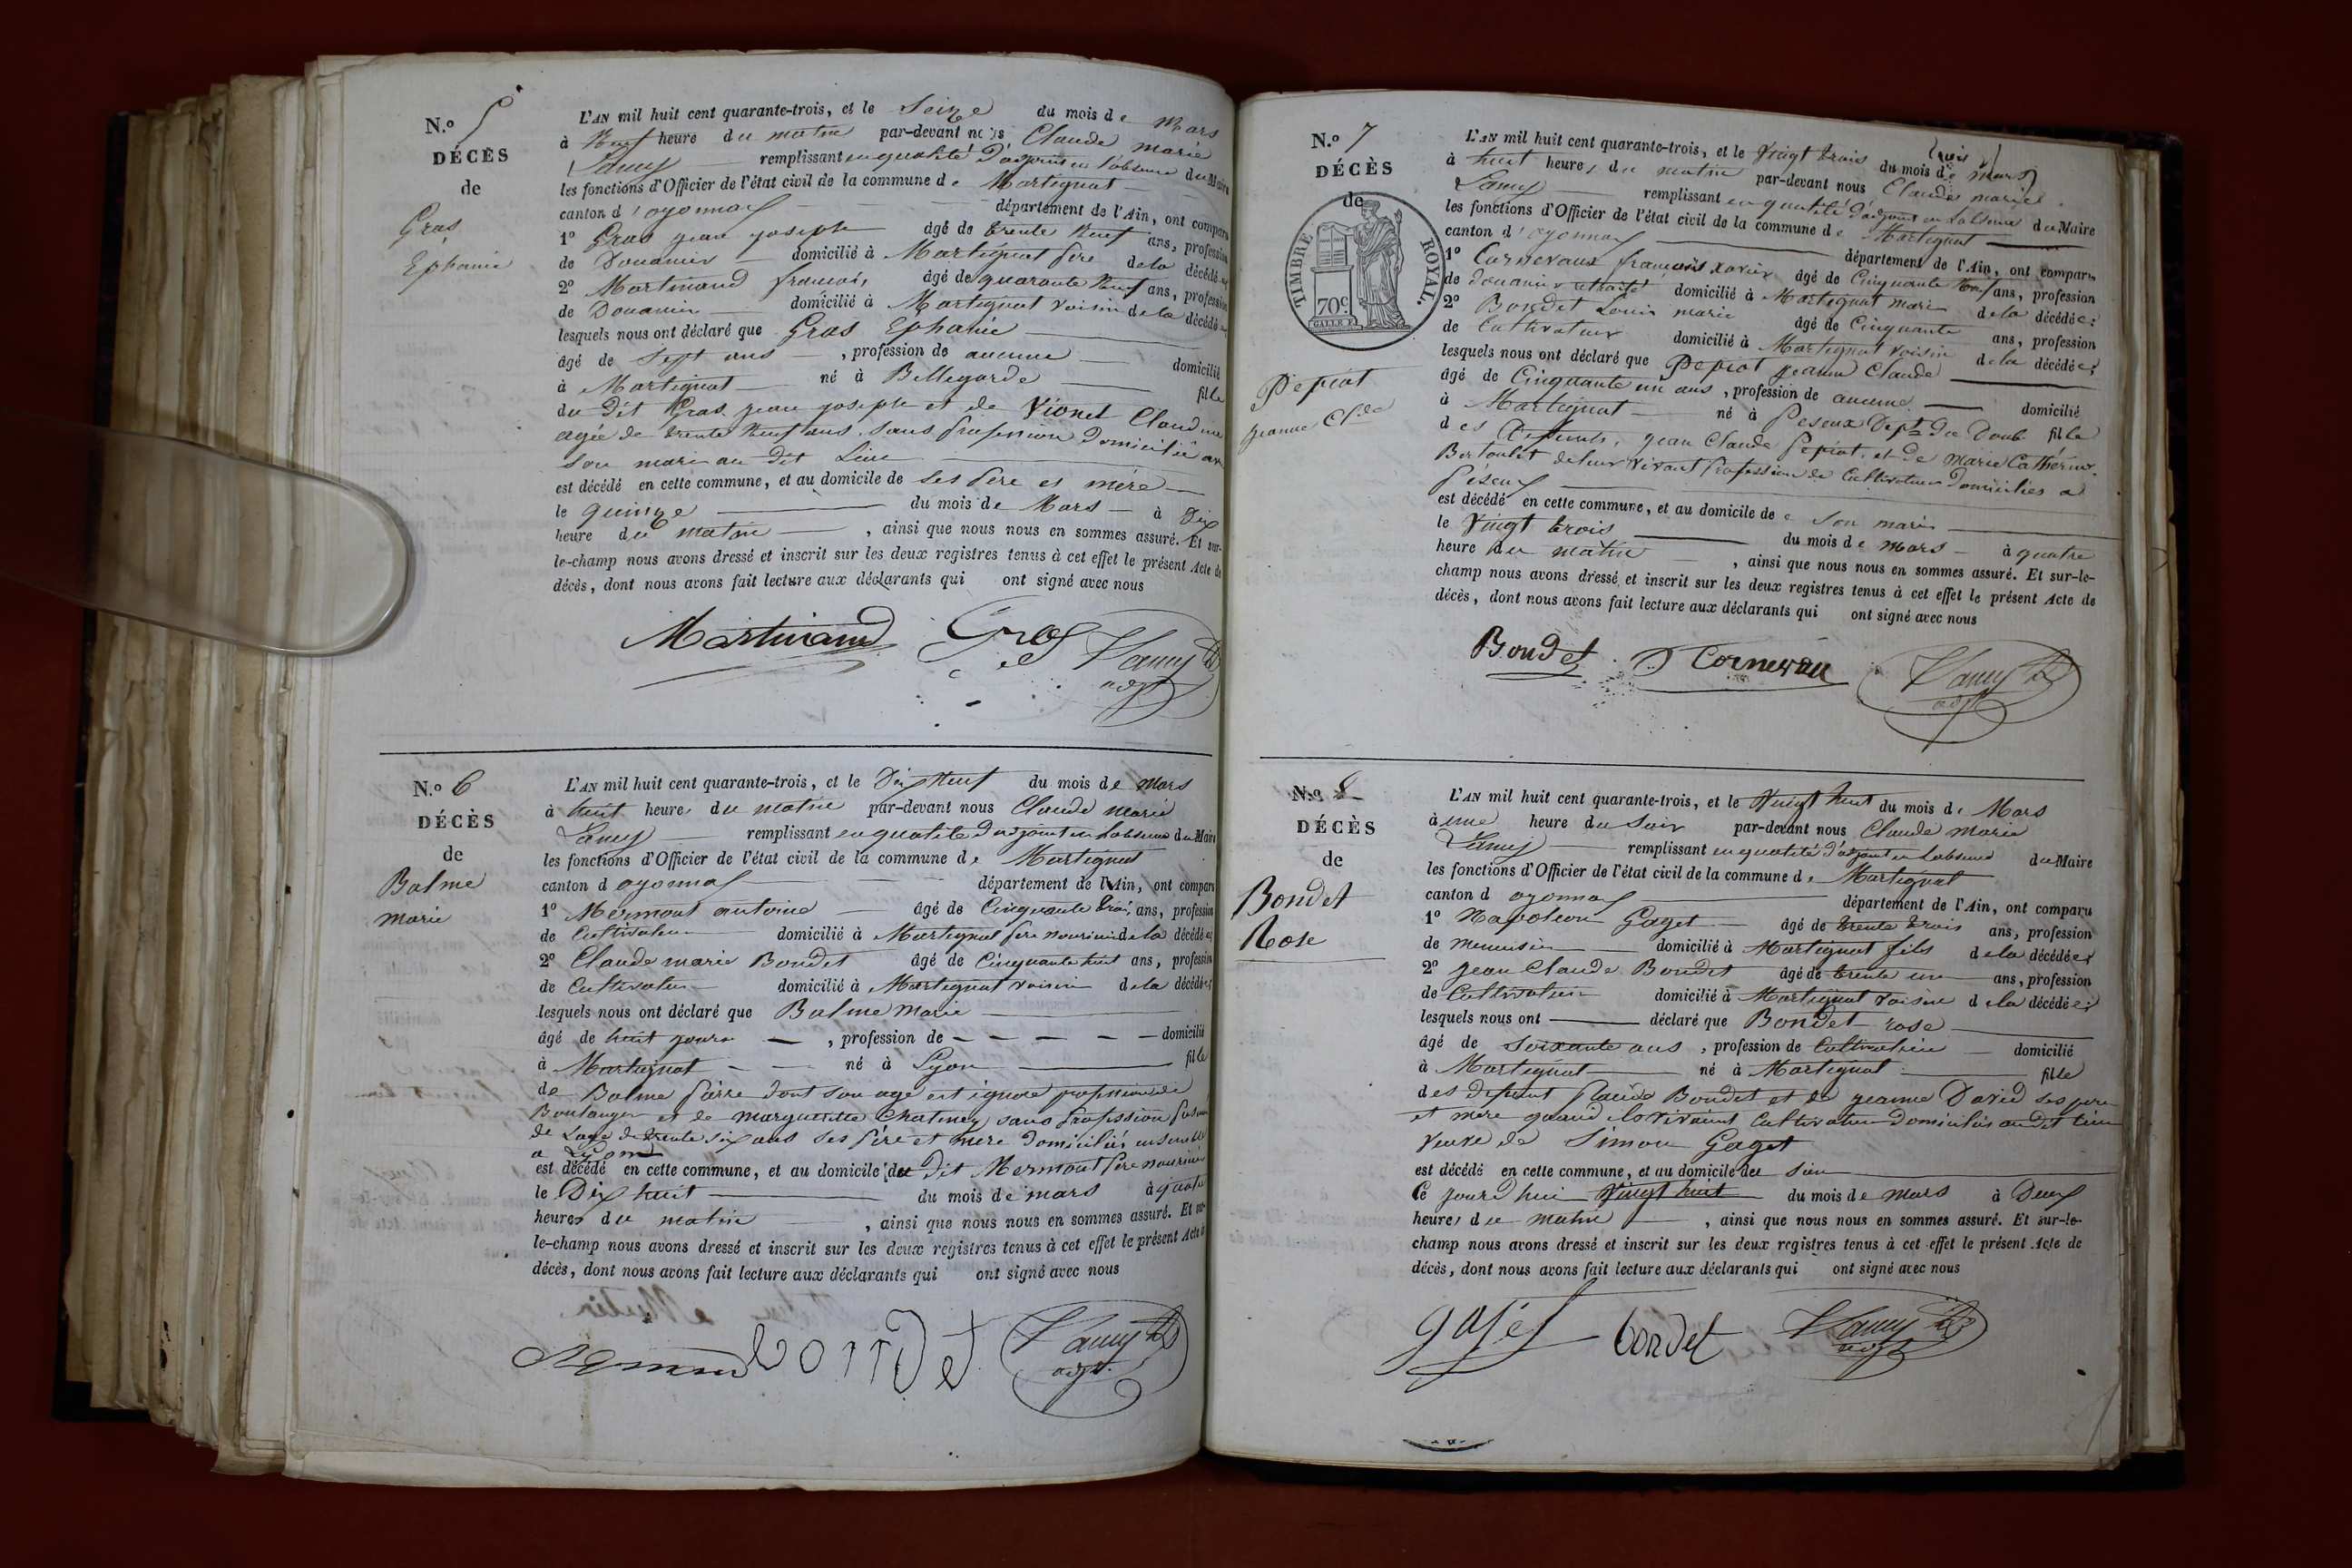 N.o 5
DÉCÈS
de
Gras
Ephanie
L'AN mil huit cent quarante-trois, et le Seize du mois de Mars
à Neuf heure du matin par-devant nous Claude marie
Lamy remplissant en qualité d'adjoint en l'absence du Maire
les fonctions d'Officier de l'état civil de la commune de Martignat
canton d'oyonnax département de l'Ain, ont comparu
1° Gras jean joseph âgé de trente Neuf ans, profession
de Douanier domicilié à Martignat père de la décédée
2° Martinand francois, âgé de quarante Neuf ans, profession
de Douanier domicilié à Martignat voisin de la décédée
lesquels nous ont déclaré que Gras Ephanie
âgé de Sept ans, profession de aucune domicilié
à Martignat né à Bellegarde fille
du dit Gras jean joseph et de Vionet Claudine
agée de trente Neuf ans, sans profession domiciliée avec
son mari au dit Lieu
est décédé en cette commune, et au domicile de ses père et mère
le quinze du mois de Mars à Dix
heure du matin, ainsi que nous nous en sommes assuré. Et sur-
le-champ nous avons dressé et inscrit sur les deux registres tenus à cet effet le présent Acte de
décès, dont nous avons fait lecture aux déclarants qui ont signé avec nous
Martinand Gras Lamy
adjt
N.o 6
DÉCÈS
de
Balme
marie
L'AN mil huit cent quarante-trois, et le Dix Neuf du mois de Mars
à huit heures du matin par-devant nous Claude Marie
Lamy remplissant en qualité d'adjoint en l'absence du Maire
les fonctions d'Officier de l'état civil de la commune de Martignat
canton d oyonnax département de l'Ain, ont comparu
1° Mermont antoine âgé de Cinquante trois ans, profession
de Cultivateur domicilié à Martignat père nouricier de la décédée
2° Claude marie Bondet âgé de Cinquante huit ans, profession
de Cultivateur domicilié à Martignat voisin de la décédée
lesquels nous ont déclaré que Balme Marie
âgé de huit jours, profession de domicilié
à Martignat né à Lyon fille
de Balme pierre dont son age est ignoré profession de
Boulanger et de marguerite Chatney sans profession
de Lage de trente six ans ses père et mère domiciliés ensemble
a Lyon
est décédé en cette commune, et au domicile du dit Mermont père nouricier
le Dix huit du mois de mars à quatre
heures du matin, ainsi que nous nous en sommes assuré. Et sur-
le-champ nous avons dressé et inscrit sur les deux registres tenus à cet effet le présent Acte de
décès, dont nous avons fait lecture aux déclarants qui ont signé avec nous
bondet Lamy
adjt.
N.o 7
DÉCÈS
de
TIMBRE ROYAL.
70c.
Pepiot
jeanne Clde
L'AN mil huit cent quarante-trois, et le Vingt trois du mois de mars
à huit heures du matin par-devant nous Claude marie
Lamy remplissant en qualité d'adjoint en l'absence du Maire
les fonctions d'Officier de l'état civil de la commune de Martignat
canton d'oyonnax département de l'Ain, ont comparu
1° Cornevaux francois xavier âgé de Cinquante Neuf ans, profession
de douanier retraité domicilié à Martignat mari de la décédée;
2° Bondet Louis marie âgé de Cinquante ans, profession
de Cultivateur domicilié à Martignat voisin de la décédée;
lesquels nous ont déclaré que Pepiot jeanne Claude
âgé de Cinquante un ans, profession de aucune domicilié
à Martignat né à Peseux Dept du Doub fille
des Defunts, jean Claude Pepiot, et de Marie Catherine
Bertoulet de leur vivant profession de Cultivateur domiciliés a
Péseux
est décédé en cette commune, et au domicile de son mari
le Vingt trois du mois de mars à quatre
heure du matin, ainsi que nous nous en sommes assuré. Et sur-le-
champ nous avons dressé et inscrit sur les deux registres tenus à cet effet le présent Acte de
décès, dont nous avons fait lecture aux déclarants qui ont signé avec nous
Bondet Cornevau Lamy
adjt
N.o 8
DÉCÈS
de
Bondet
Rose
L'AN mil huit cent quarante-trois, et le Vingt huit du mois de Mars
à une heure du Soir par-devant nous Claude Marie
Lamy remplissant en qualité d'adjoint en l'absence du Maire
les fonctions d'Officier de l'état civil de la commune de Martignat
canton d oyonnax département de l'Ain, ont comparu
1° Napoleon Gaget âgé de trente trois ans, profession
de menuisier domicilié à Martignat fils de la décédée
2° jean Claude Bondet âgé de trente un ans, profession
de Cultivateur domicilié à Martignat voisin de la décédée;
lesquels nous ont déclaré que Bondet rose
âgé de Soixante ans, profession de Cultivatrice domicilié
à Martignat né à Martignat fille
des defunt Claude Bondet et de jeanne David ses père
et mère quand ils vivaient Cultivateur domiciliés au dit lieu
veuve de Simon Gaget
est décédé en cette commune, et au domicile du sien
Ce jourd'hui Vingt huit du mois de mars à Deux
heures du matin, ainsi que nous nous en sommes assuré. Et sur-le-
champ nous avons dressé et inscrit sur les deux registres tenus à cet effet le présent Acte de
décès, dont nous avons fait lecture aux déclarants qui ont signé avec nous
gajet bondet Lamy
adjt